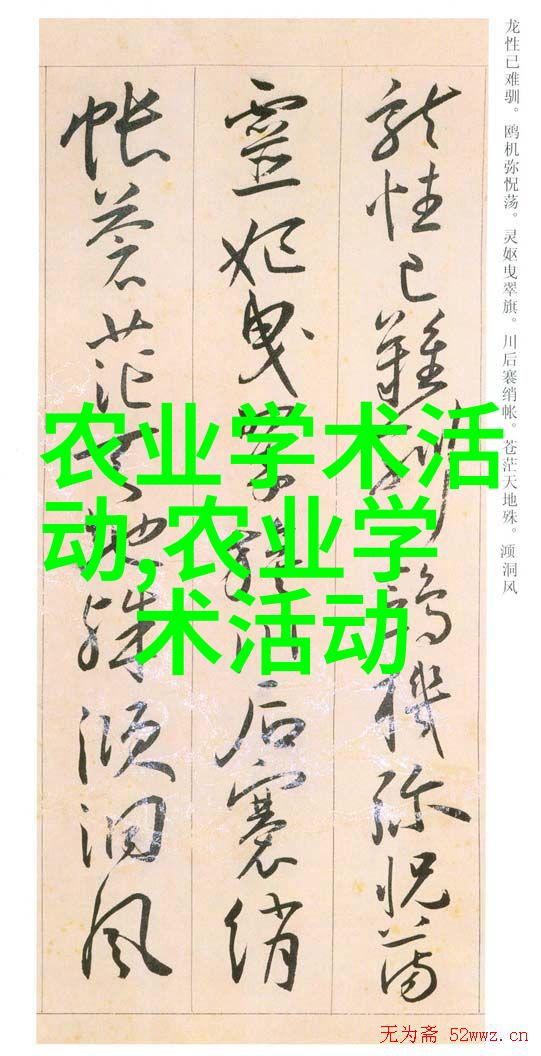 龙性已难驯。鸥机弥怳荡。灵妪曳翠旗。川后褰绡帐。苍茫天地殊。澒洞风
龍性已難馴鷗機弥怳蕩
靈妃曳翠旗川后褰绡
帐苍茫天地殊澒洞风
农业学术活
动,农业学
术活动
无为斋 52wwz.cn